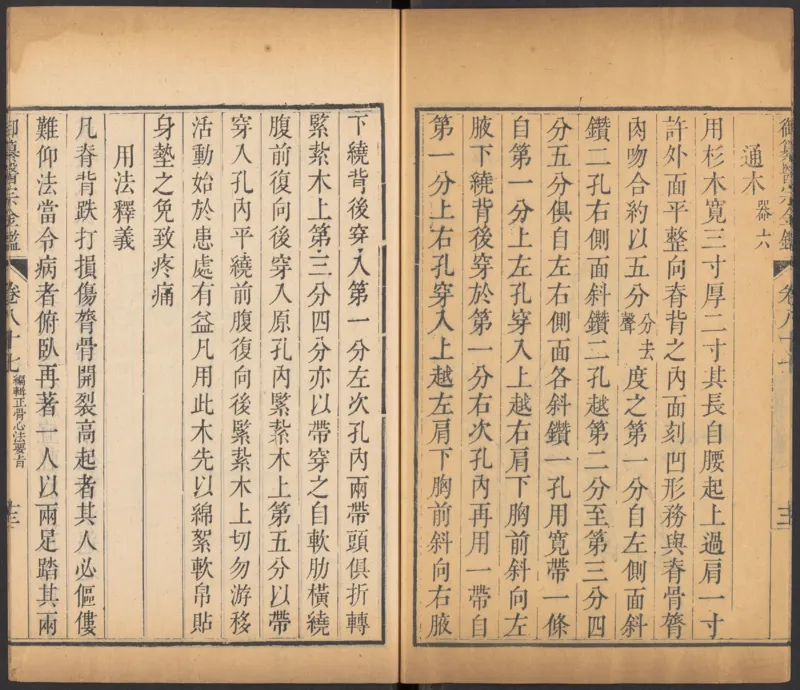 御纂醫宗金鑑 卷八十七 十三
通木 器六
用杉木寬三寸厚二寸其長自腰起上過肩一寸
許外面平整向脊背之內面刻凹形務與脊骨膂
肉吻合約以五分分去聲度之第一分自左側面斜
鑽二孔右側面斜鑽二孔越第二分至第三分四
分五分俱自左右側面各斜鑽一孔用寬帶一條
自第一分上左孔穿入上越右肩下胸前斜向左
腋下繞背後穿於第一分右次孔內再用一帶自
第一分上右孔穿入上越左肩下胸前斜向右腋
下繞背後穿入第一分左次孔內兩帶頭俱折轉
緊紮木上第三分四分亦以帶穿之自軟肋橫繞
腹前復向後穿入原孔內緊紮木上第五分以帶
穿入孔內平繞前腹復向後緊紮木上切勿游移
活動始於患處有益凡用此木先以綿絮軟帛貼
身墊之免致疼痛
用法釋義
凡脊背跌打損傷膂骨開裂高起者其人必傴僂
難仰法當令病者俯臥再著一人以兩足踏其兩
御纂醫宗金鑑 卷八十七 編輯正骨心法要旨 十三